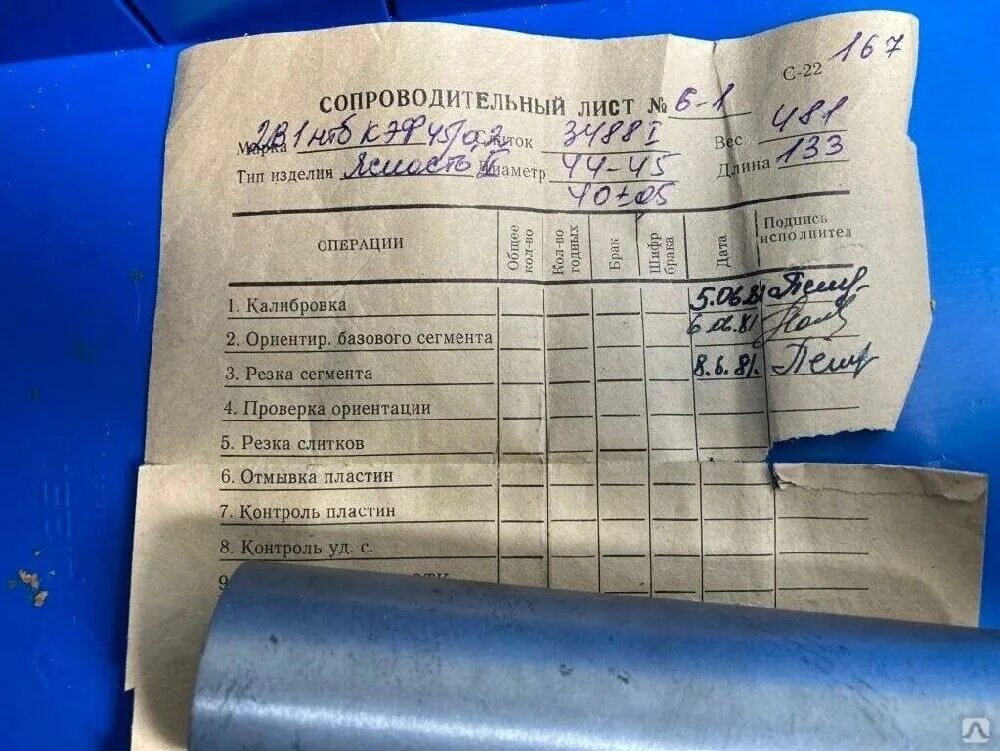 С-22 167
СОПРОВОДИТЕЛЬНЫЙ ЛИСТ № 6-1
Марка КЭФ 45/0,2 Слиток 3488I Вес 481
Тип изделия Диаметр 44-45 Длина 133
40±05
ОПЕРАЦИИ
Общее кол-во
Кол-во годных
Брак
Шифр брака
Дата
Подпись исполнител
1. Калибровка 5.06.81
2. Ориентир. базового сегмента 6.06.81
3. Резка сегмента 8.6.81.
4. Проверка ориентации
5. Резка слитков
6. Отмывка пластин
7. Контроль пластин
8. Контроль уд. с.
9